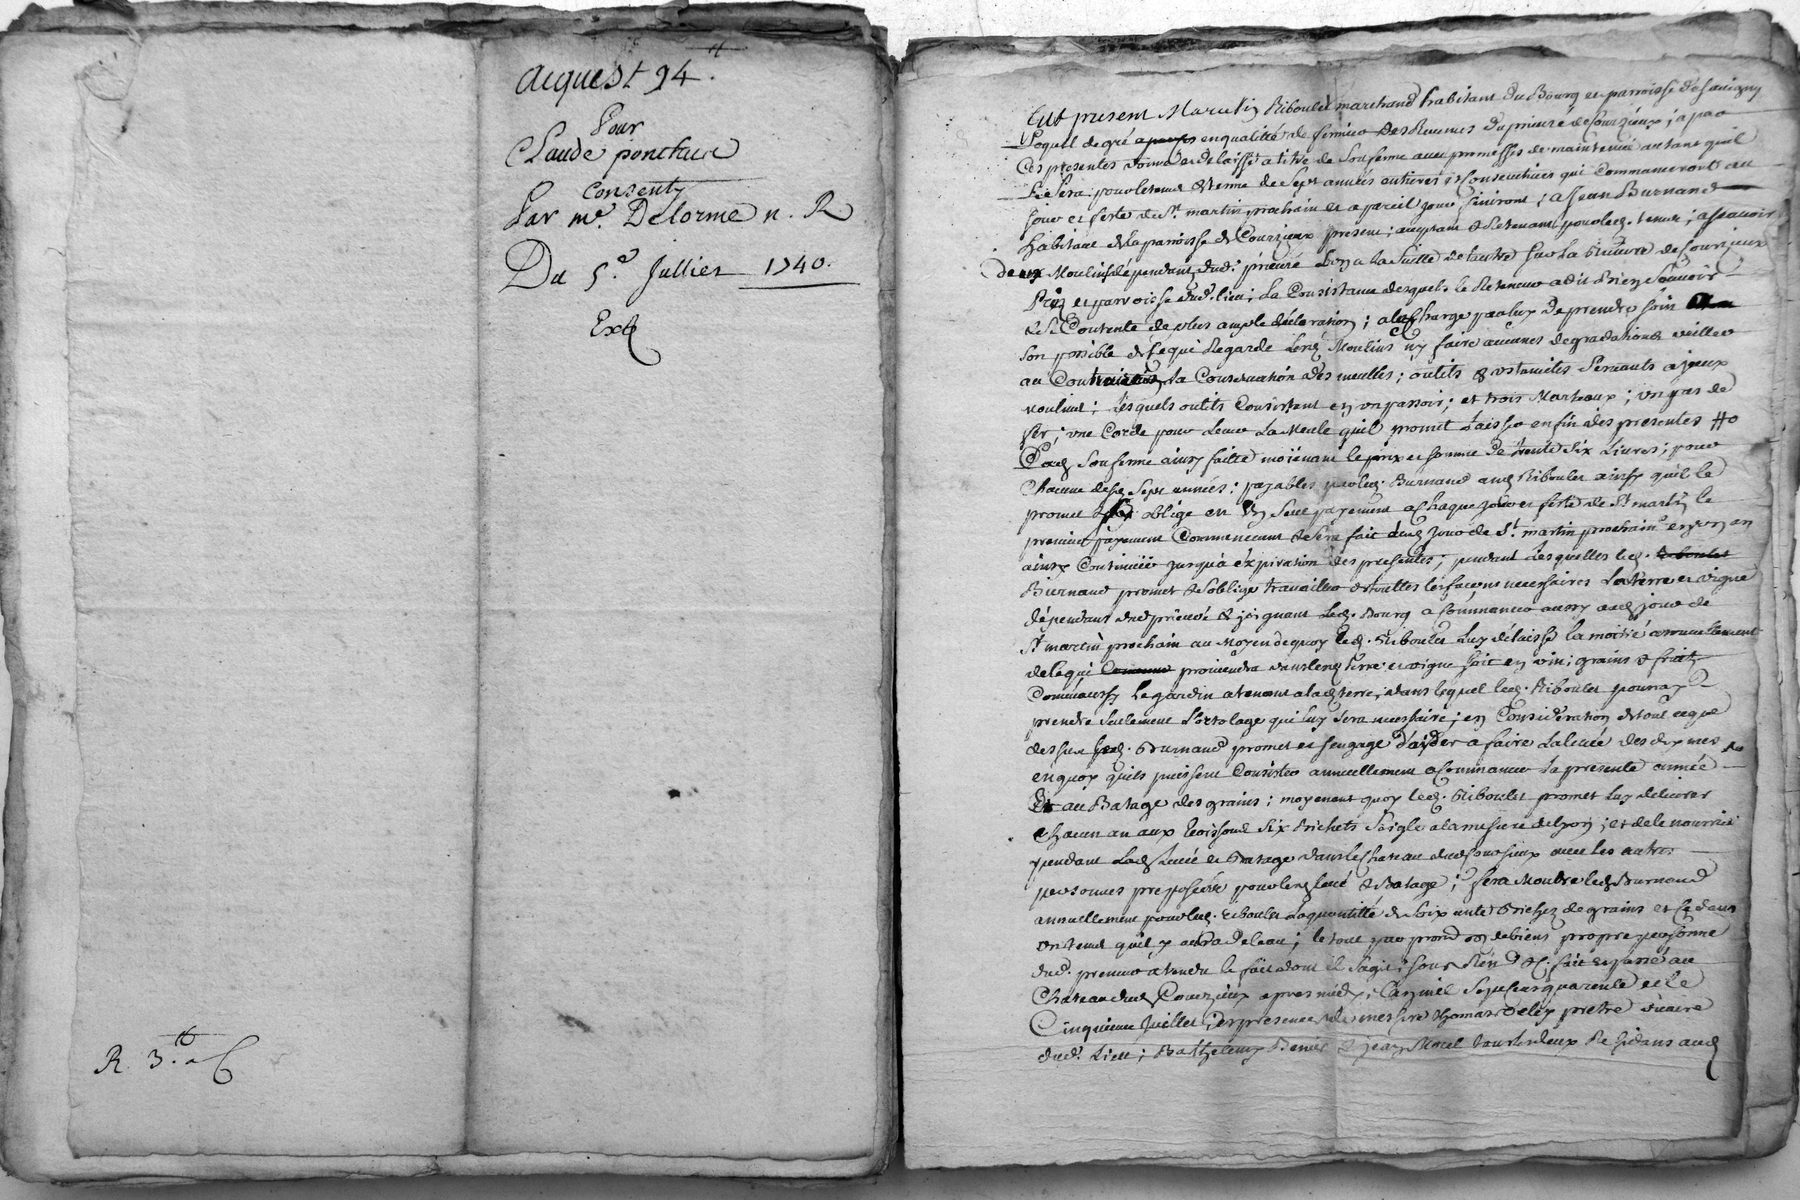 acquest 94.tt
Pour
Claude poncture
Consenty
Par me. Delorme n. R.
Du 5e. Jullier 1740.
Exté
R. 3.tt
Fut present Marcelin Riboulet marchand habitant du Bourg et parroisse de Savigny
Lequel de gré en qualité de fermier des Revenus du prieuré de Courzieux; a par
Ces presentes donné et delaissé a titre de Sousferme avec promesses de maintenüe autant quil
Le Sera pour le tems & terme de Sept années entieres & Consecutives qui Commanceront au
jour et feste de St. martin prochain et a pareil jour finiront; a Jean Burnand
habitant de la parroisse de Courzieux present; acceptant & Retenant pour led. tems; assavoir
deux Moulins dépendants dud. prieuré Lun a la Suitte de lautre Sur la Riviere de Courzieux
et parroisse dud. lieu; La Consistance desquels le Reteneur a dit Bien Sçavoir
& Se Contente de plus ample déclaration; a la Charge par luy de prendre soin
Son possible de ce qui Regarde Lesd. Moulins ny faire aucunes degradations veiller
au Contraire a la Conservation des meulles; outils & ustancilles Servants a iceux
moulins; lesquels outils Consistent en un passoir; et trois Marteaux; un pas de
fer; une Corde pour Lever La Meule quil promet Laisser en fin des presentes
Lad. Sousferme ainsy faitte moïenant le prix et somme de trente Six Livres; pour
Chacune desd. Sept années; payables par led. Burnand aud. Riboulet ainsy quil le
promet & Soblige en un Seul payement a Chaque jour et feste de St. martin le
premier payement Commencant & Sera fait aud. jour de St. martin prochain en un an
ainsy Continüer jusqua éxpiration des presentes; pendant lesquelles led. Riboulet
Burnand promet & Soblige travailler de touttes les façons necessaires La terre et vigne
dépendant dud. prieuré & joignant Led. Bourg a Commancer aussy aud. jour de
St. martin prochain au Moyen de quoy led. Riboulet Luy délaisse la moitié annuellement
de ce qui proviendra dans lesd. terre et vigne soit en vin; grains & fruits
Comme aussy Le jardin attenant a lad. terre; dans lequel led. Riboulet pourra
prendre Seulement Lortolage qui luy Sera necessaire; en Consideration de tout ce que
dessus led. Burnand promet et Sengage daider a faire La levée des dixmes
en quoy quils puissent Consister annuellement a Commancer La presente année
Et au Batage des grains; moyenant quoy led. Riboulet promet luy delivrer
chacun an aux moissons Six Bichets Seigle a la mesure de Lyon; et de le nourrir
pendant Lad. Levée et Batage dans le Chateau dud. Courzieux avec les autres
personnes preposées pour lesd. Levé & Batage; Sera Moudre led. Burnand
annuellement pour led. Riboulet La quantité de Soixante Bichez de grains et ce dans
un tems quil y aura de leau; le tout par
dud. preneur attendu le fait dont il Sagit; Sous &c. fait et passé au
Chateau dud. Courzieux apres midy; Lan mil Sept Cens quarante et le
Cinquieme Juillet; en presence de messire Thomas Deley pretre vicaire
dud. Lieu; Barthelemy & jean Morel tous deux Residans aud.